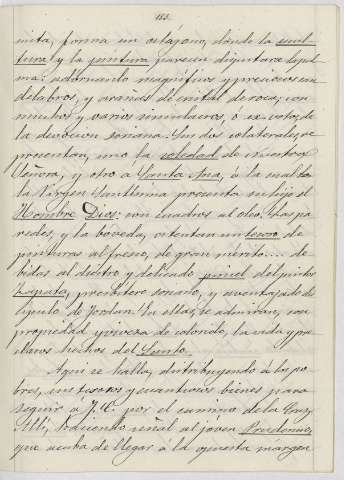 153.
nita, forma un octágono, donde la escul-
tura y la pintura parecen disputarse la pal-
ma: adornanto magníficos y preciosos can-
delabros, y arañas de cristal de roca, con
muchos y varios simulacros, ó ex-votos, de
la devocion soriana. Sus dos colaterales, re-
presentan, uno la soledad de nuestra
Señora, y otro a Santa Ana, á la cual
la Vírgen Santísima presenta su hijo el
Hombre Dios: con cuadros al oleo. Las pa-
redes, y la bóveda, ostentan un tesoro de
pinturas al fresco, de gran mérito... de-
bidas al diestro y delicado pincel del pintor
Zapata, presbítero soriano, y aventajado dis-
cípulo de Jordan. En ellas, se admiran, con
propiedad y viveza de colorido, la vida y pre-
claros hechos del Santo.
Aquí se halla, distribuyendo á los po-
bres, sus tesoros y cuantiosos bienes para
seguir á J. C. por el camino de la Cruz.
Allí, haciendo señal al joven Prudencio,
que acaba de llegar á la opuesta márgen